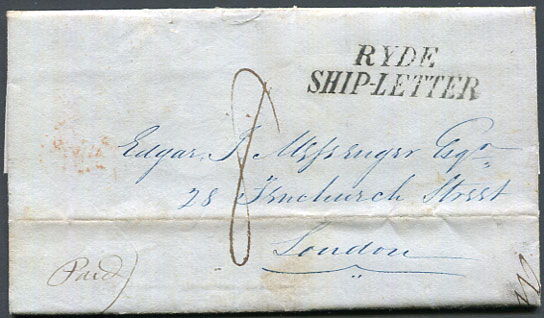 RYDE
SHIP-LETTER
8
Edgar J. Messenger Esqre
28 Fenchurch Street
London
Paid